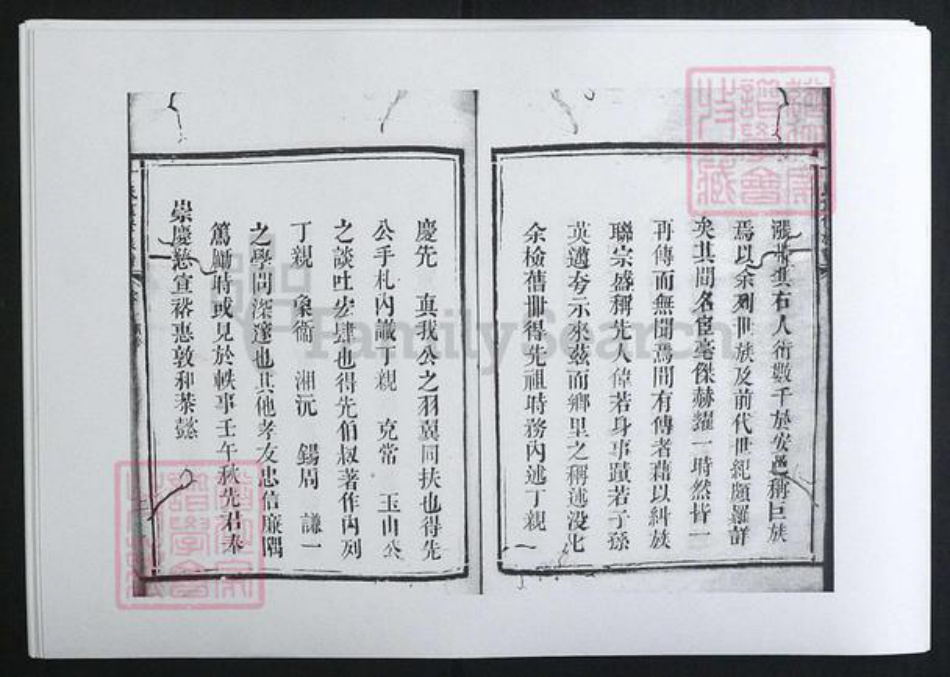 漲甚其右人衍數千於安邑稱巨族
焉以余列世族及前代世紀頗羅詳
矣其間名宦毫傑赫耀一時然皆一
再傳而無聞焉間有傳者藉以糾族
聯宗盛稱先人偉若身事蹟若子孫
英邁夸示來茲而鄉里之稱述没七
余檢舊冊得先祖時務內述丁親一
慶先 真我公之羽翼同扶也得先
公手札內識丁親 克常 玉山公
之談吐宏肆也得先伯叔著作內列
丁親 彙衢 湘沅 錫周 謙一
之學問深邃也其他孝友忠信廉隅
篤勵時或見於軼事壬午秋先君奉
崇慶慈宣裕惠敦和恭懿
FamilySearch